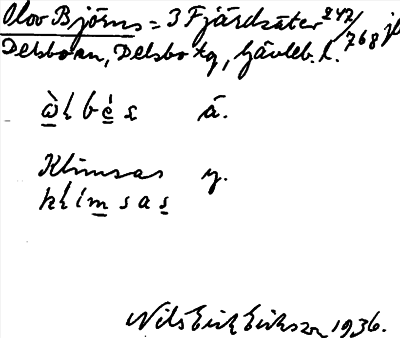 Olov Björns = 3 Fjärdsäter 242/768 jb
Delsboån, Delsbo tg, Gävleb. l.
à l b é s å.
Klimsas y.
k l i m s a s
Nils Erik Eriksson 1936.